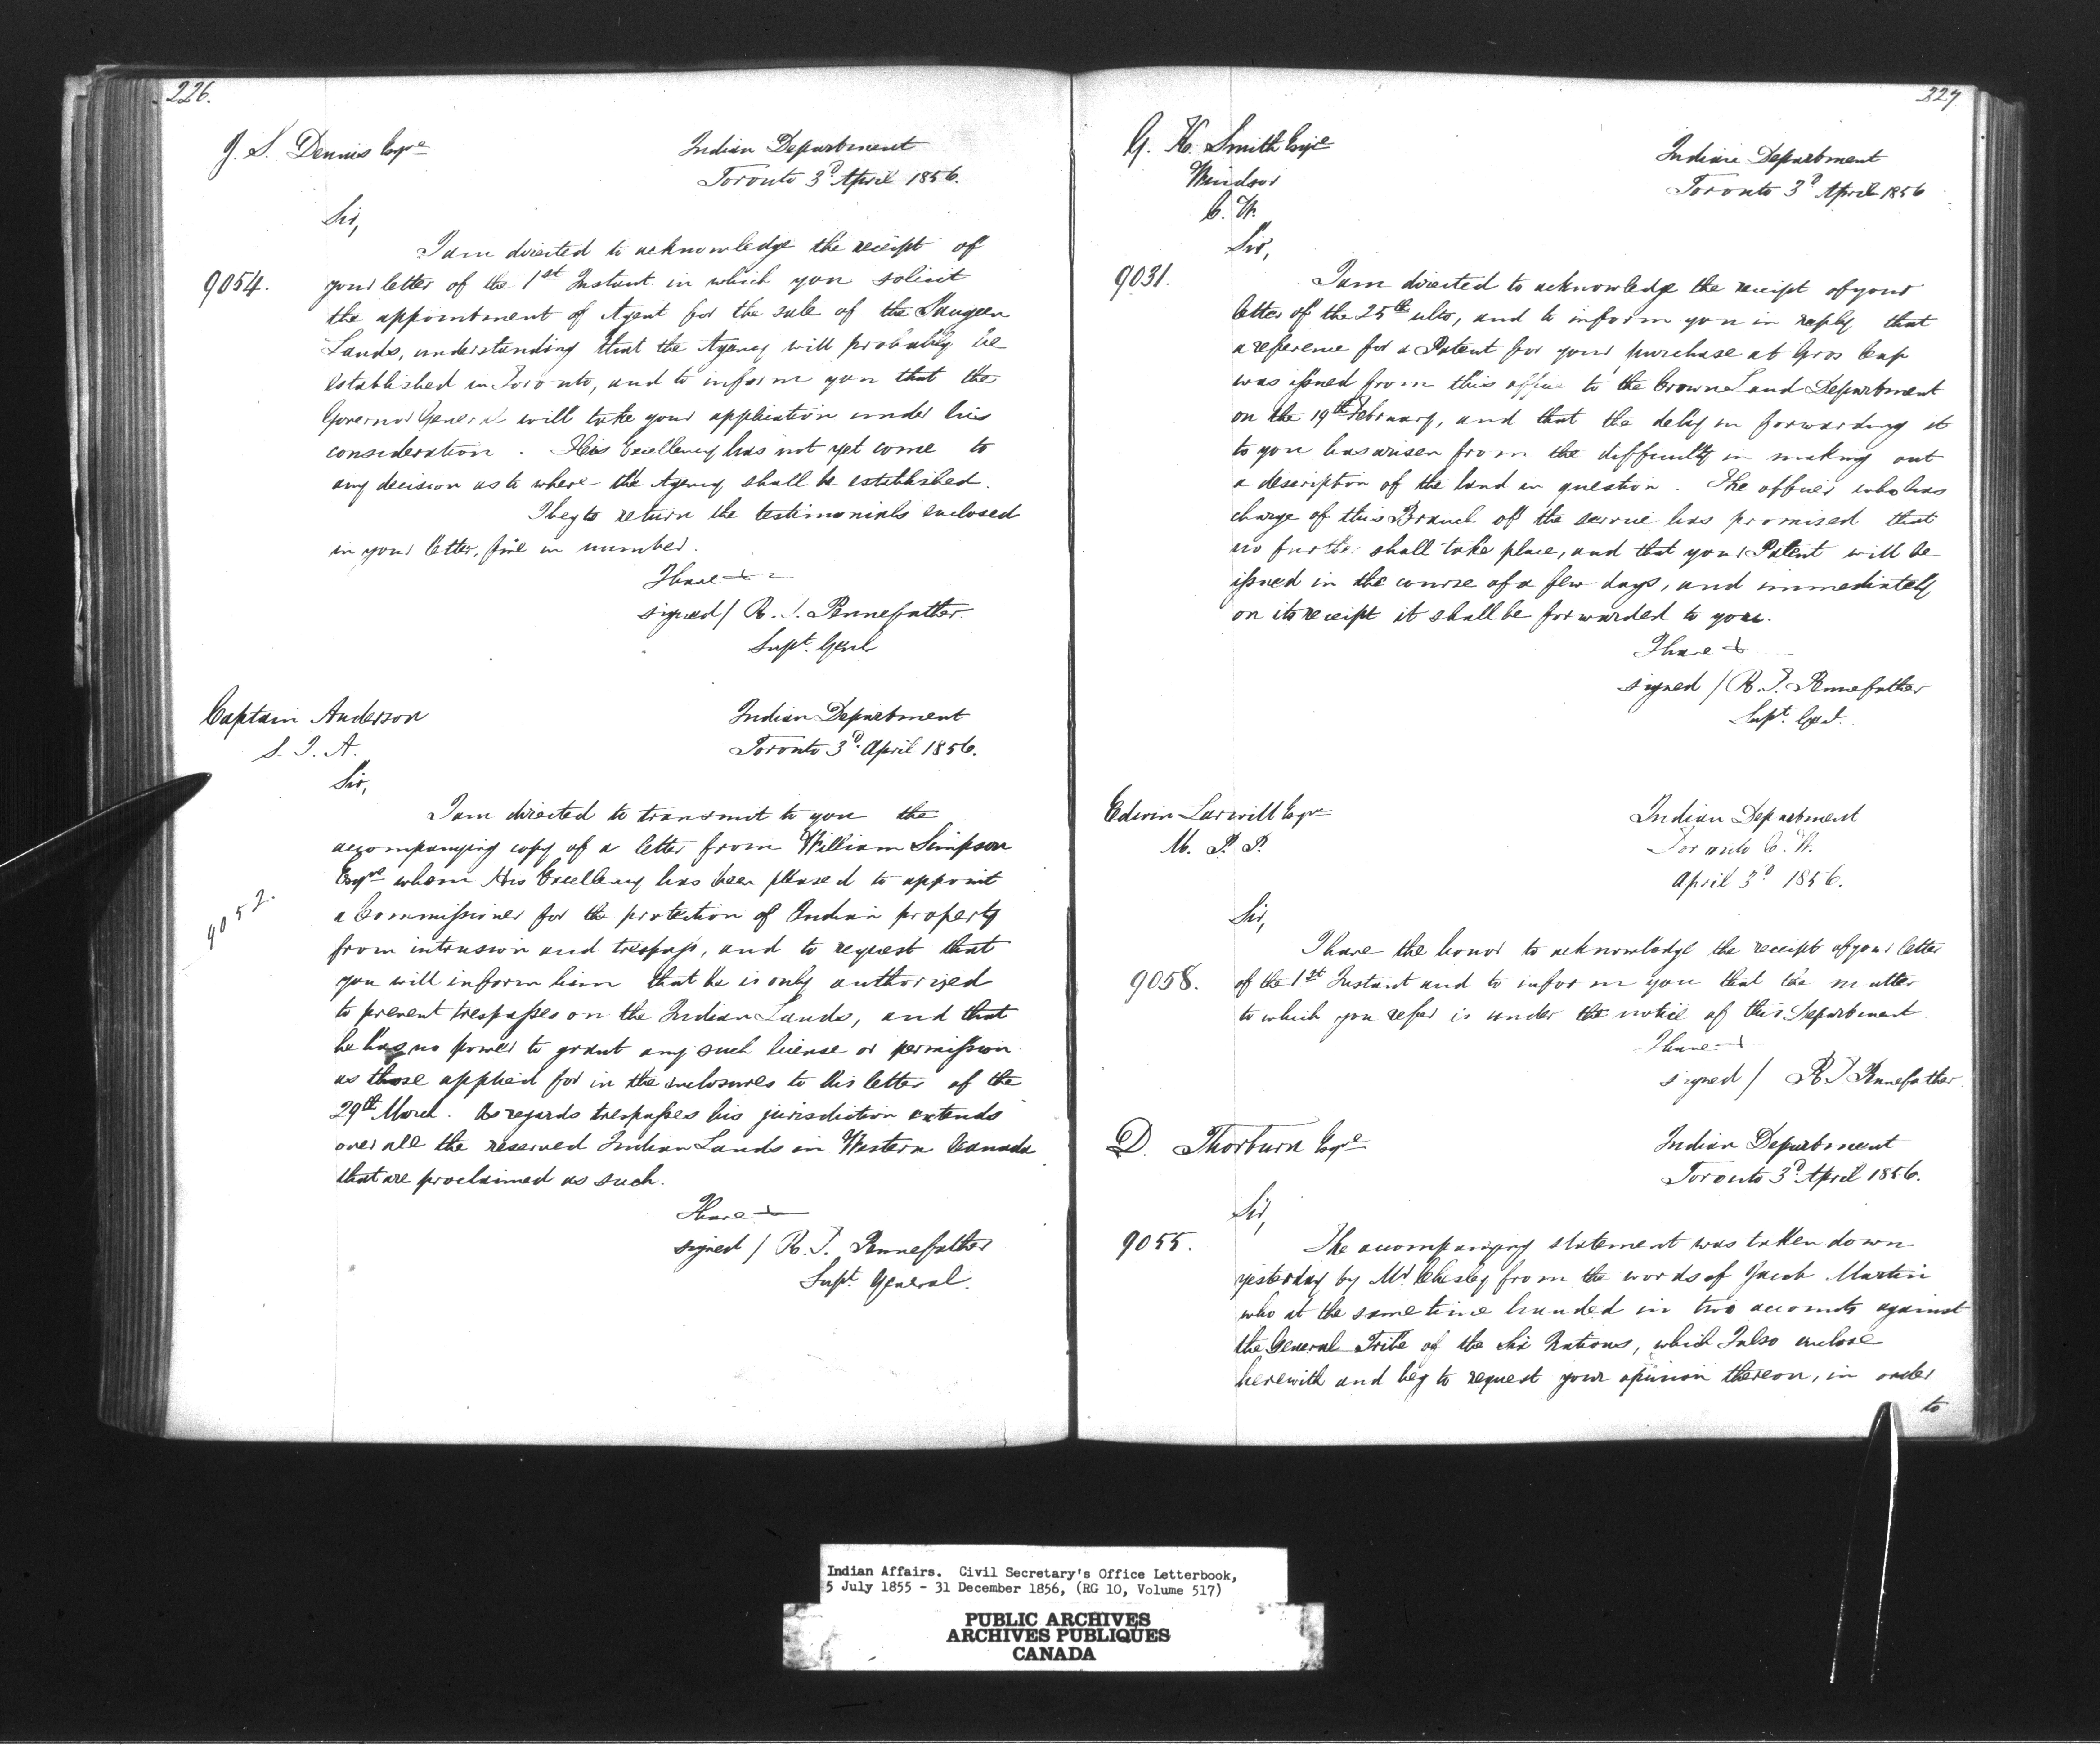 226.
J. S. Dennis Esqre
Indian Department
Toronto 3d April 1856.
Sir,
I am directed to acknowledge the receipt of
9054. your letter of the 1st Instant in which you solicit
the appointment of Agent for the sale of the Saugeen
Lands, understanding that the Agency will probably be
established in Toronto, and to inform you that the
Governor General will take your application under his
consideration. His Excellency has not yet come to
any decision as to where the Agency shall be established.
I beg to return the testimonials enclosed
in your letter, five in number.
I have &
signed / R. T. Pennefather.
Supt. Genl
Captain Anderson
S. I. A.
Indian Department
Toronto 3d April 1856.
Sir,
I am directed to transmit to you the
accompanying copy of a letter from William Simpson
9052. Esqre whom His Excellency has been pleased to appoint
a Commissioner for the protection of Indian property
from intrusion and trespass, and to request that
you will inform him that he is only authorized
to prevent trespasses on the Indian Lands, and that
he has no power to grant any such license or permission
as those applied for in the enclosures to his letter of the
29th March. As regards trespasses his jurisdiction extends
over all the reserved Indian Lands in Western Canada
that are proclaimed as such.
I have &
signed / R. T. Pennefather
Supt. General.
227
G. K. Smith Esqre
Windsor
C. W.
Indian Department
Toronto 3d April 1856
Sir,
9031. I am directed to acknowledge the receipt of your
letter of the 25th ulto, and to inform you in reply that
a reference for a Patent for your purchase at Gros Cap
was issued from this office to the Crown Land Department
on the 19th February, and that the delay in forwarding it
to you has arisen from the difficulty in making out
a description of the land in question. The officer who has
charge of this Branch of the service has promised that
no further shall take place, and that your Patent will be
issued in the course of a few days, and immediately
on its receipt it shall be forwarded to you.
I have &
signed / R. T. Pennefather
Supt. Genl.
Edwin Larwill Esqre
M. P. P.
Indian Department
Toronto C. W.
April 3d 1856.
Sir,
I have the honor to acknowledge the receipt of your letter
9058. of the 1st Instant and to inform you that the matter
to which you refer is under the notice of this Department
I have &
signed / R T Pennefather.
D. Thorburn Esqre
Indian Department
Toronto 3d April 1856.
Sir,
9055. The accompanying statement was taken down
yesterday by Mr Chesley from the words of Jacob Martin
who at the same time handed in two accounts against
the General Tribe of the Six Nations, which I also enclose
herewith and beg to request your opinion thereon, in order
to
Indian Affairs. Civil Secretary's Office Letterbook,
5 July 1855 - 31 December 1856, (RG 10, Volume 517)
PUBLIC ARCHIVES
ARCHIVES PUBLIQUES
CANADA